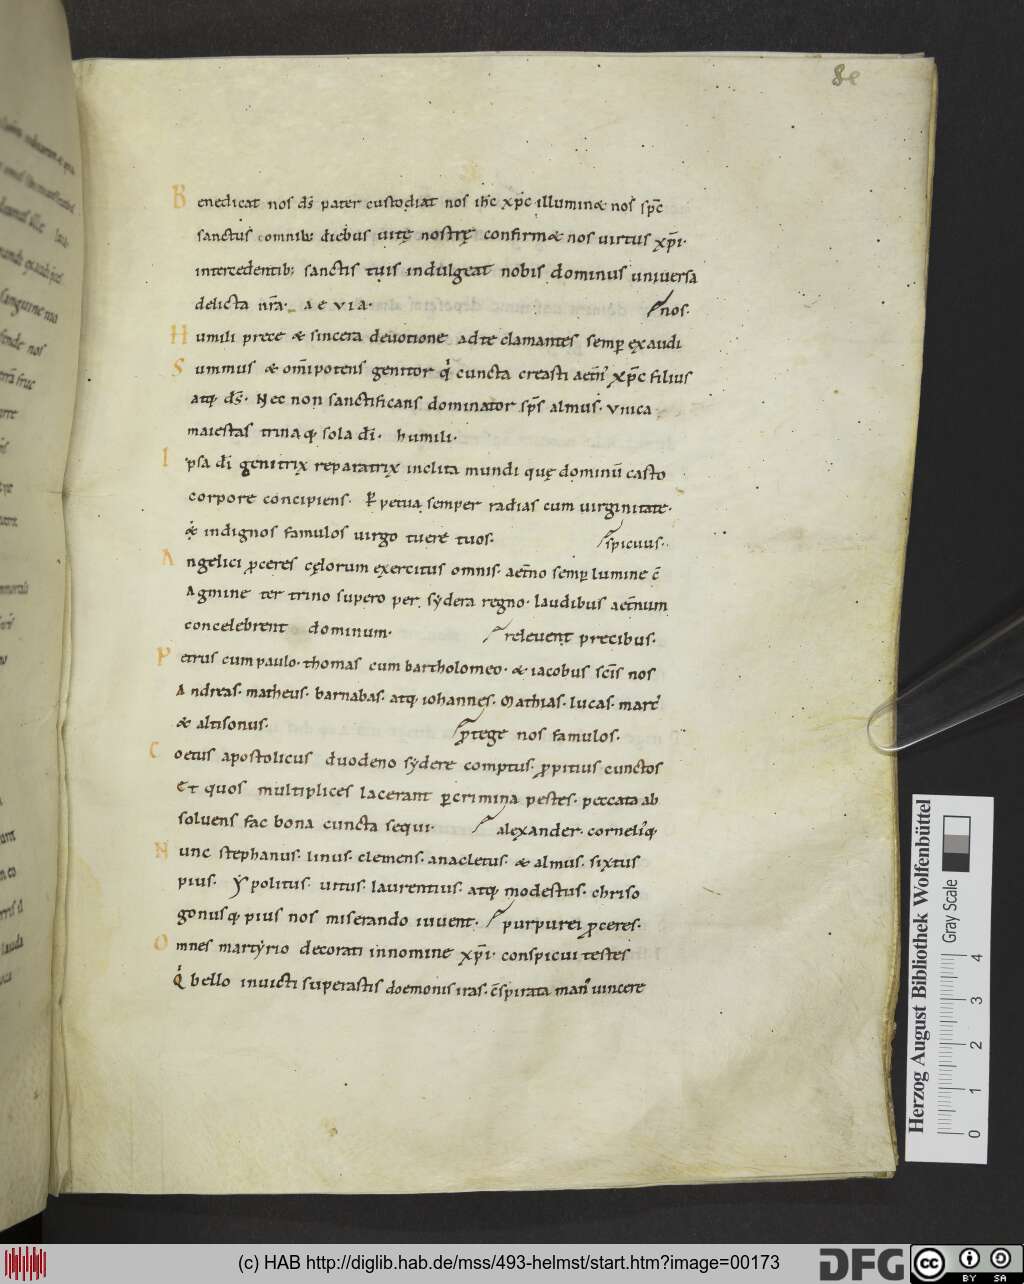 80
Benedicat nos d̄s pater custodiat nos ih̄c xp̄c illuminet nos sp̄c
sanctus omnib; diebus uitę nostrę confirmet nos uirtus xp̄i·
intercedentib; sanctis tuis indulgeat nobis dominus uniuersa
delicta nr̄a· aeuia· nos·
Humili prece & sincera deuotione ad te clamantes semp̱ ęxaudi
Summus & om̄ipotens genitor q' cuncta creasti aet̄n' xp̄c filius
atq; d̄s· Nec non sanctificans dominator sp̄s almus· Vnica
maiestas trinaq; sola dī· humili·
Ipsa dī genitrix reparatrix inclita mundi quę dominū casto
corpore concipiens· ꝑpetua semper radias cum uirginitate·
& indignos famulos uirgo tuere tuos· spicuus·
Angelici ꝓceres cęlorum exercitus omnis· aet̄no semp̱ lumine c̄
Agmine ter trino supero per sẏdera regno· laudibus aet̄num
concelebrent dominum· releuent precibus·
Petrus cum paulo· thomas cum bartholomeo· & iacobus sc̄is nos
Andreas· matheus· barnabas· atq; iohannes· Mathias· lucas· marc'
& altisonus· ꝓtege nos famulos·
Coetus apostolicus duodeno sẏdere comptus· ꝓpitius cunctos
Et quos multiplices lacerant ꝑcrimina pestes· peccata ab
soluens fac bona cuncta sequi· alexander· corneli'q;
Nunc stephanus· linus· clemens· anacletus· & almus· sixtus
pius· ẏpolitus· uitus· laurentius· atq; modestus· chriso
gonusq; pius nos miserando iuuent· purpurei ꝓceres·
Omnes martẏrio decorati innomine xp̄i· conspicui testes
Q' bello inuicti superastis doemonis iras· c̄spirata man' uincere
Herzog August Bibliothek Wolfenbüttel
Gray Scale
0 1 2 3 4
(c) HAB http://diglib.hab.de/mss/493-helmst/start.htm?image=00173
DFG
cc BY SA